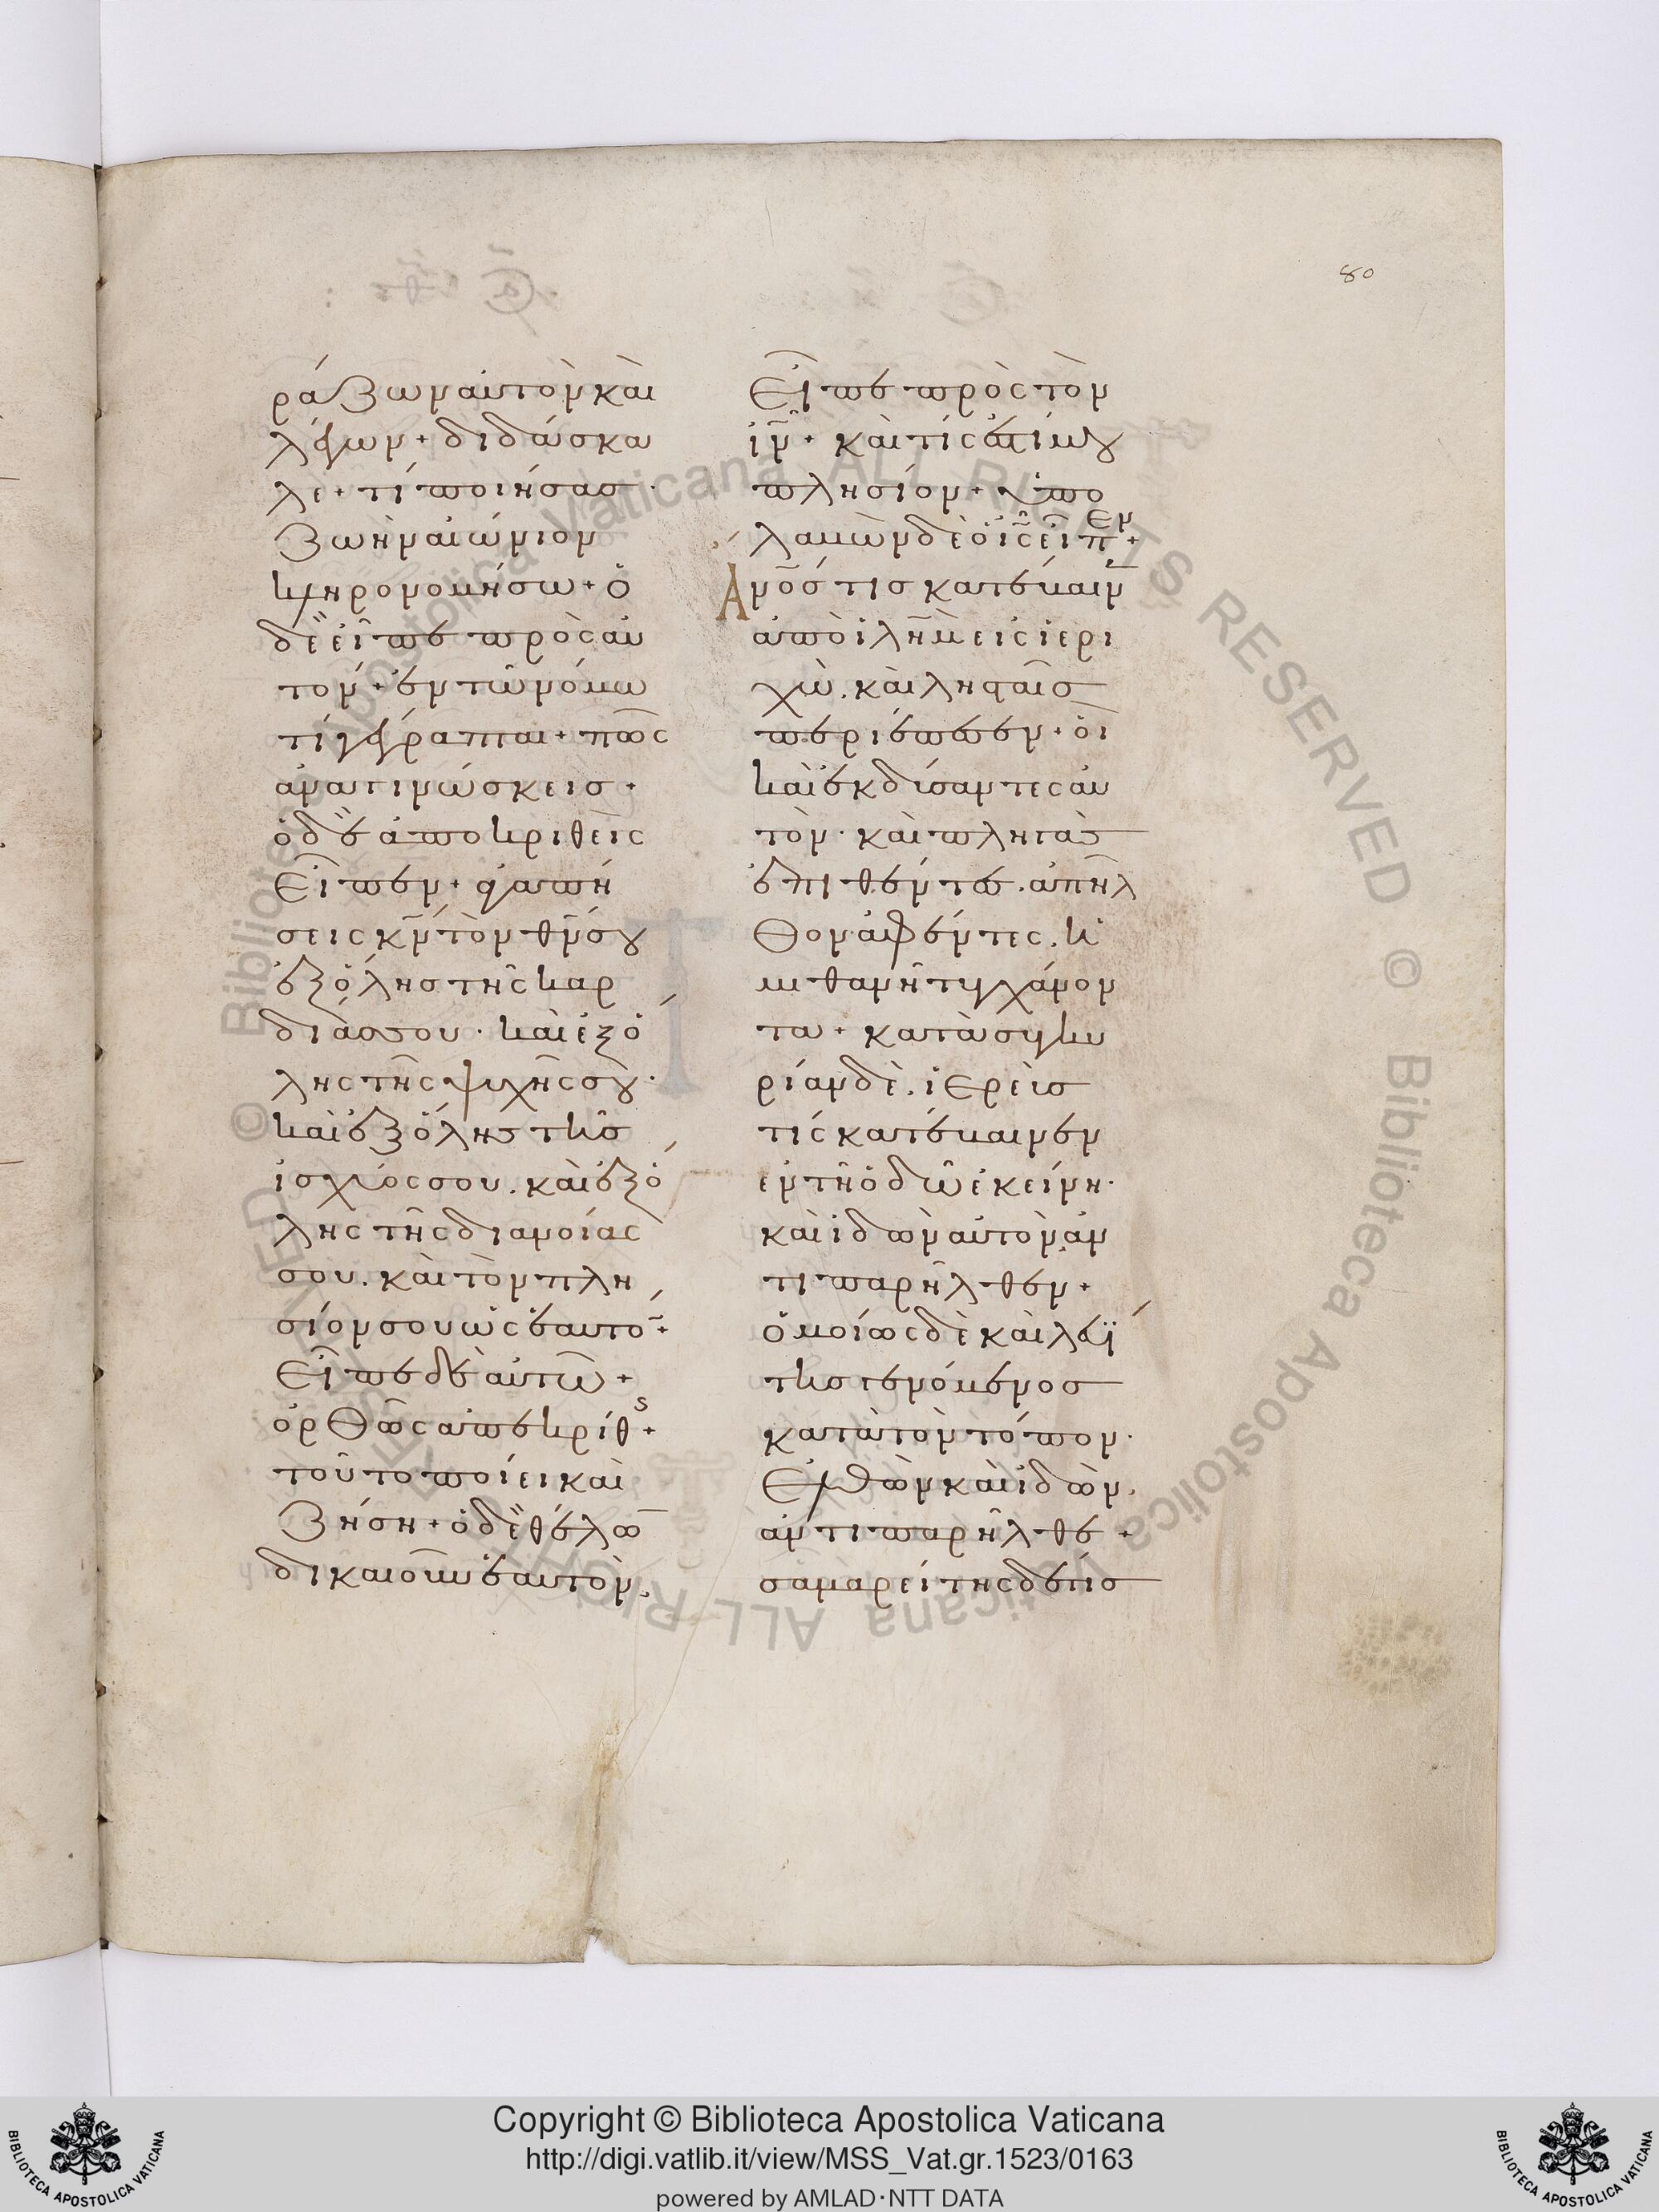 80
ράζων αὐτὸν καὶ
λέγων + διδάσκα
λε + τί ποιήσας
ζωὴν αἰώνιον
κληρονομήσω + ὁ
δὲ εἶπε πρὸς αὐ
τόν + ἐν τῷ νόμω
τί γέγραπται + πῶς
ἀναγινώσκεισ +
ὁ δὲ ἀποκριθεὶς
εἶπεν + ἀγαπή
σεις κ̅ν̅ τὸν θ̅ν̅ σου
ἐξ ὅλησ τῆς καρ
δίασ σου · καὶ ἐξ ὅ
λης τῆς ψυχῆς σου ·
καὶ ἐξ ὅλησ τῆσ
ἰσχύος σου . καὶ ἐξ ὅ
λης τῆς διανοίας
σου . καὶ τὸν πλη
σίον σου ὡς ἑαυτό +
εἶπε δὲ αὐτῶ +
ὀρθῶς ἀπεκρίθς +
τοῦτο ποίει καὶ
ζήση + ὁ δὲ θέλω
δικαιοῦν ἑαυτὸν .
εἶπε πρὸς τὸν
ι̅ν̅ + καὶ τίς ἐστί μου
πλησίον + ὑπο
λαβὼν δὲ ὁ ι̅ς̅ εἶπεν +
Α̅ν̅ο̅ς τισ κατέβαιν
ἀπὸ ι̅λ̅η̅μ̅ εἰς ἱερι
χὼ . καὶ λησταῖσ
περιέπεσεν + οἳ
καὶ ἐκδύσαντες αὐ
τὸν · καὶ πληγὰσ
ἐπιθέντεσ . ἀπῆλ
θον ἀφέντες . ἡ
μιθανῆ τυγχάνον
τα + κατὰ συγκυ
ρίαν δὲ . ἱερεὺσ
τίς κατέβαινεν
ἐν τῆ ὁδῶ ἐκείνη ·
καὶ ἰδὼν αὐτὸν ἀν
τιπαρῆλθεν +
ὁμοίως δὲ καὶ λευΐ
τησ γενόμενοσ
κατὰ τὸν τόπον ·
ἐλθὼν καὶ ἰδὼν .
ἀντιπαρῆλθε +
σαμαρείτης δέ τίσ
Copyright © Biblioteca Apostolica Vaticana
http://digi.vatlib.it/view/MSS_Vat.gr.1523/0163
powered by AMLAD·NTT DATA